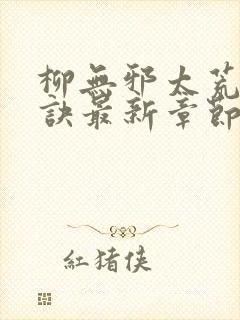 柳無邪太荒
訣最新章節
紅猪侠